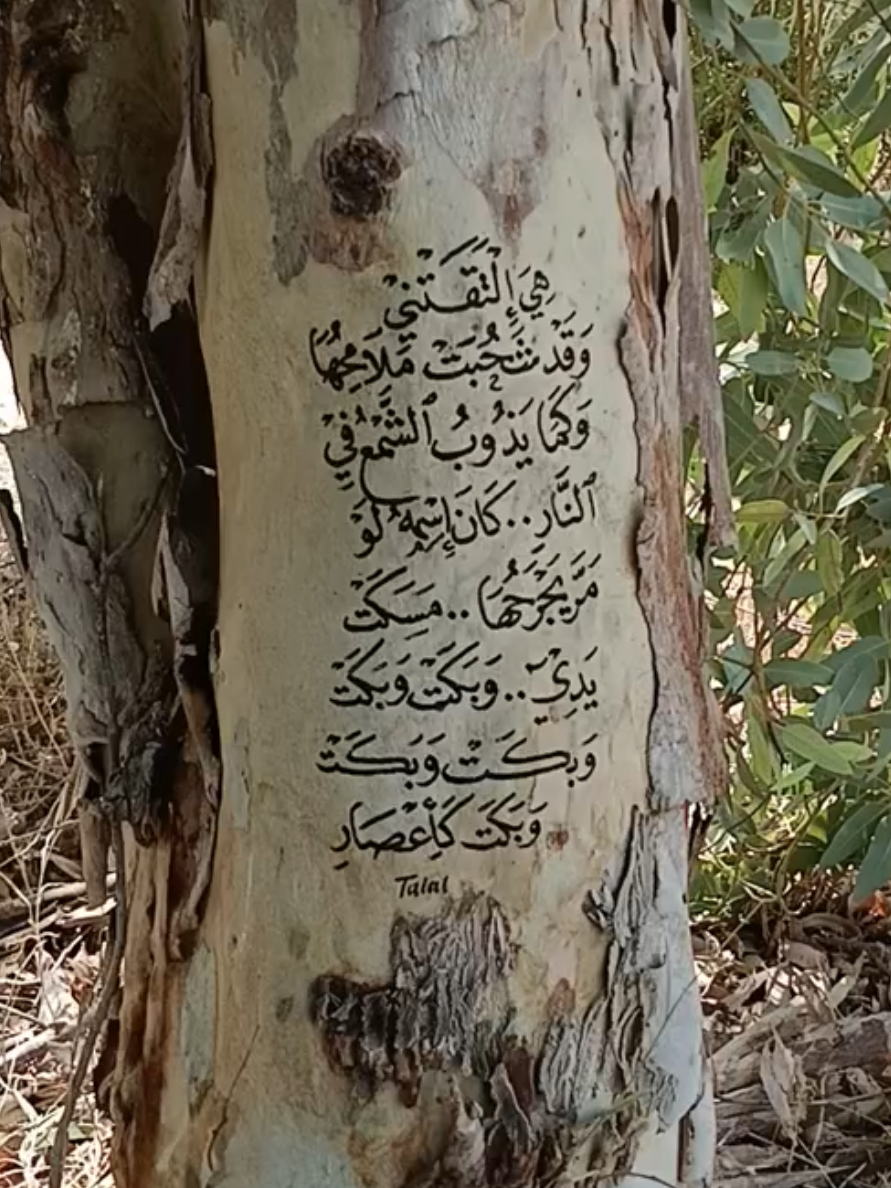 هِيَ إِلْتَقَتْنِي
وَقَدْ شَحُبَتْ مَلَامِحُهَا
وَكَمَا يَذُوبُ ٱلشَّمْعُ فِي
ٱلنَّارِ..كَانَ إِسْمِهُ لَوْ
مَرَّ يَجْرَحُهَا .. مَسِكَتْ
يَدِيْ .. وَبَكَتْ وَبَكَتْ
وَبَكَتْ وَبَكَتْ
وَبَكَتَ كَأَعْصَارِ
Talal